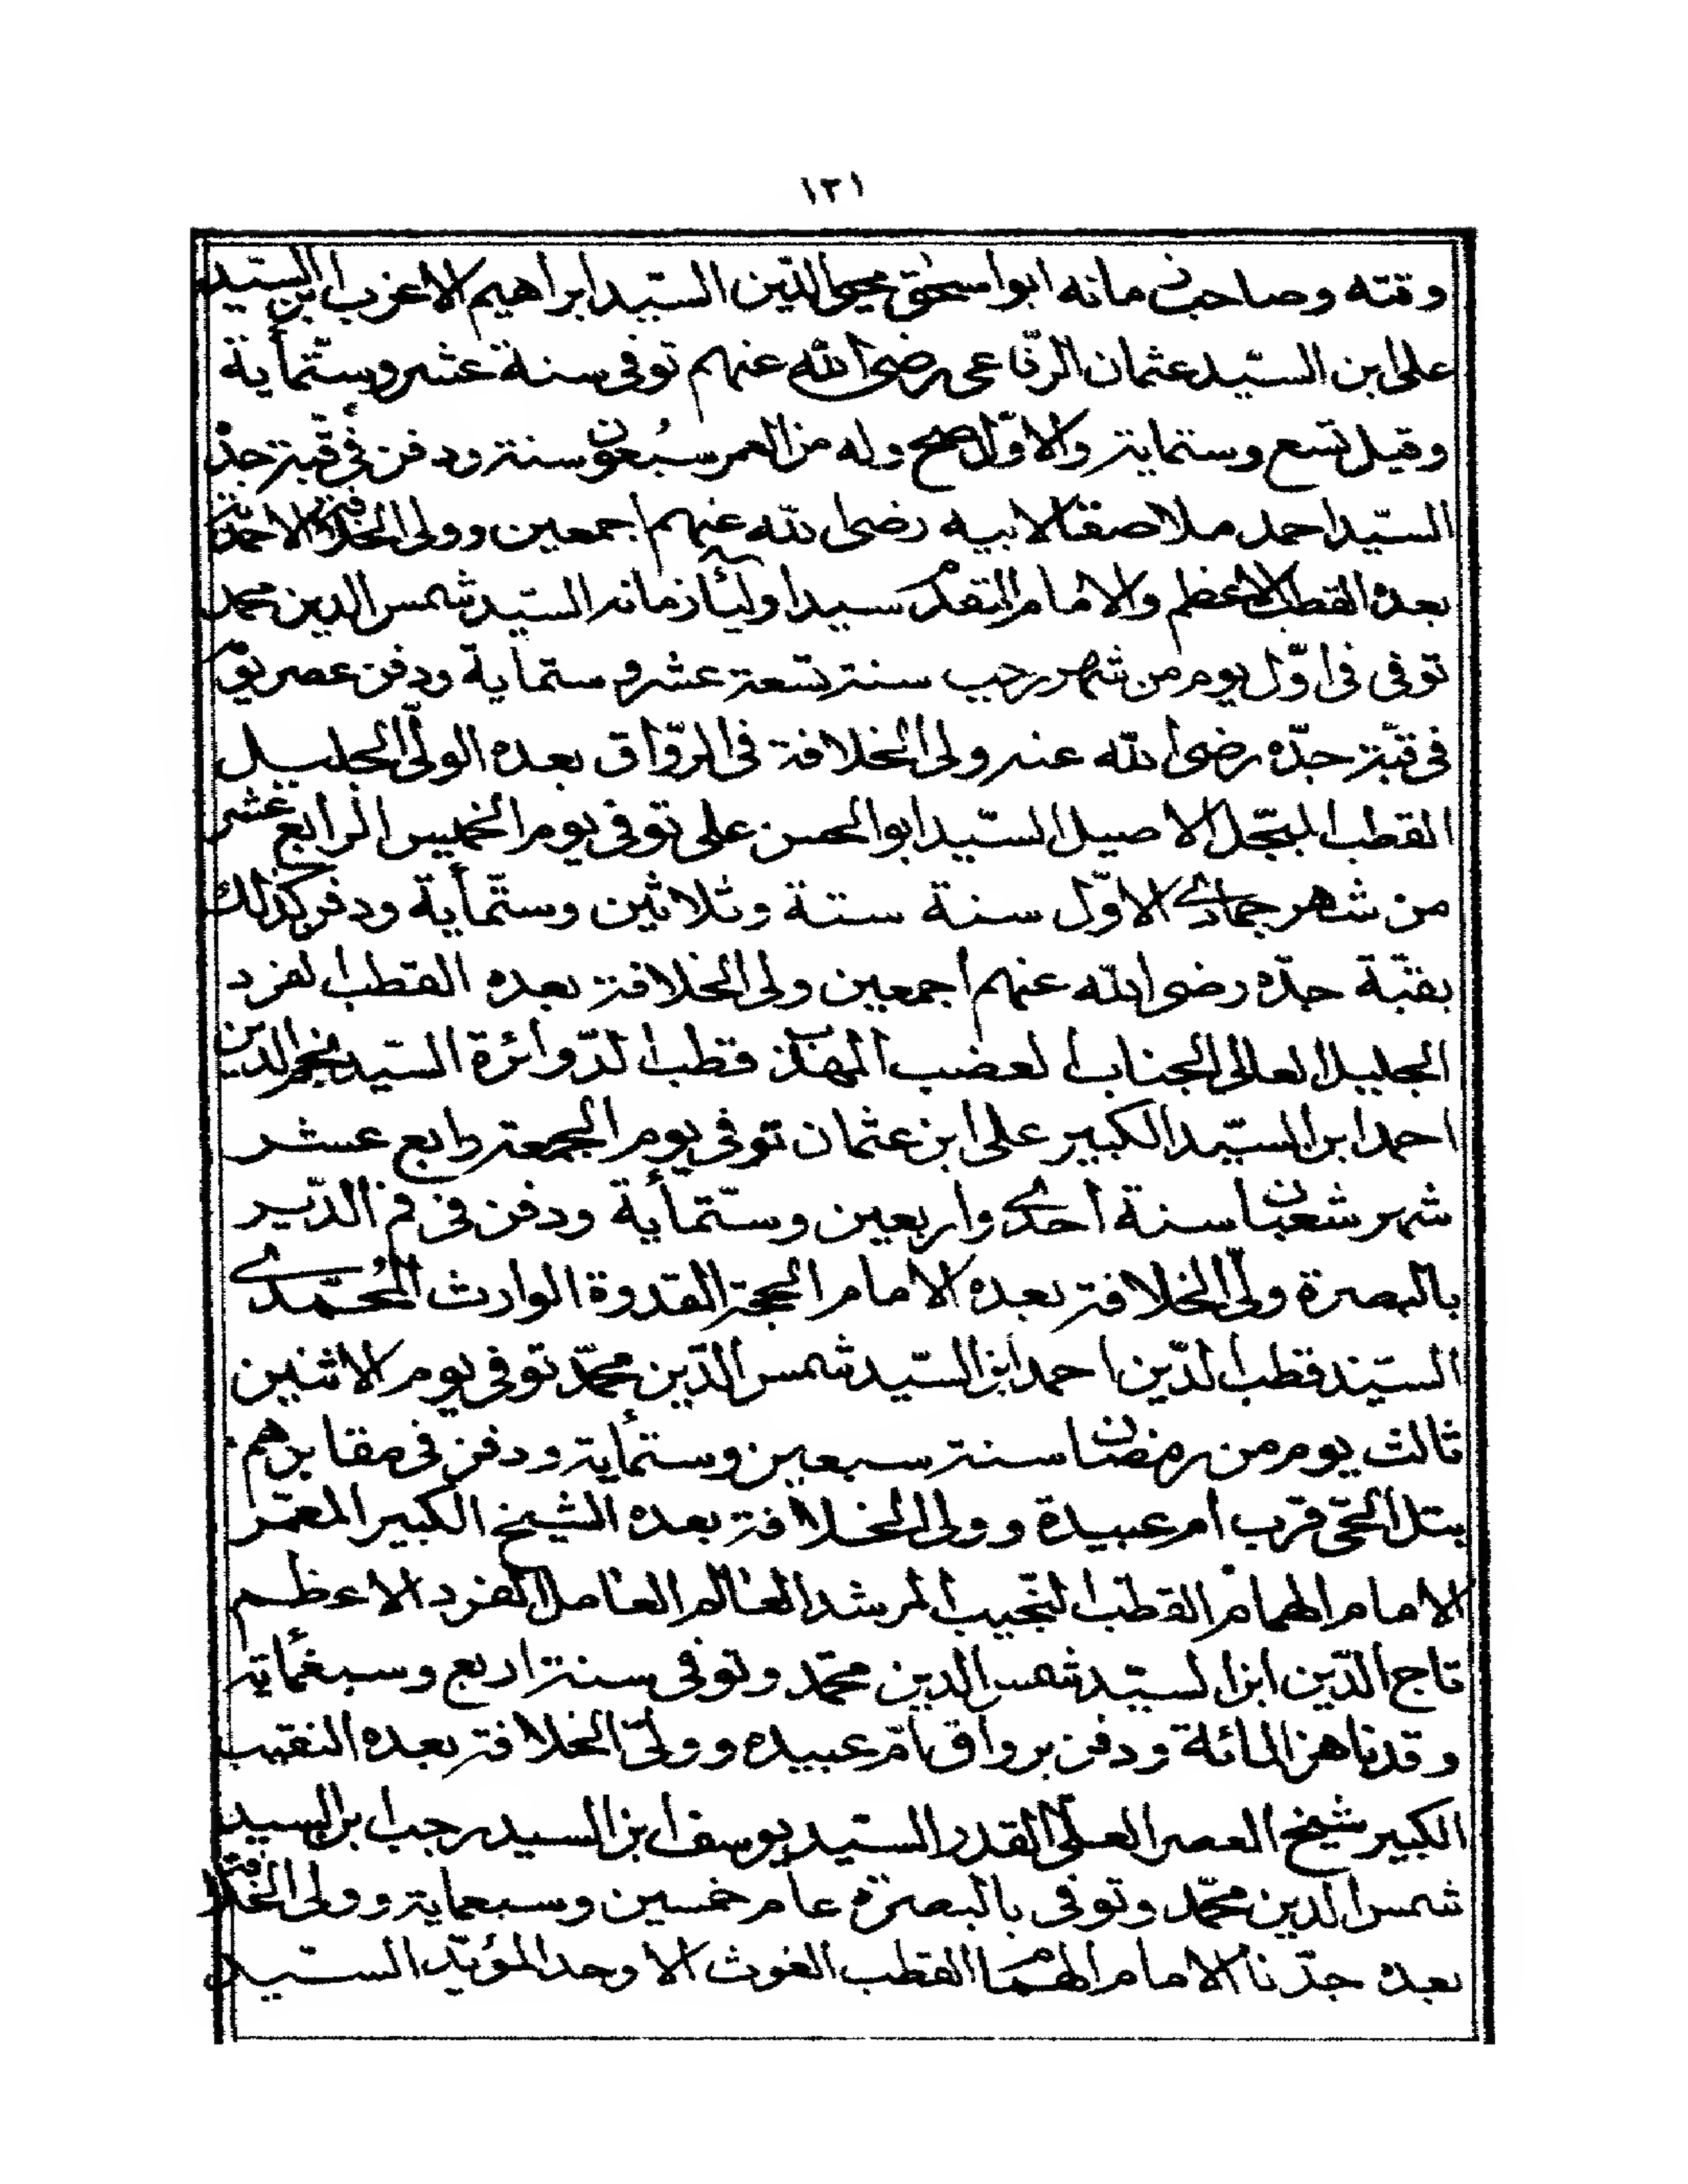 ١٢١
وقته وصاحب زمانه ابو اسحق محيى الدّين السّيد ابراهيم الاعزب ابن السّيد
على ابن السّيد عثمان الرّفاعى رضى الله عنهم توفى سنة عشر وستّمأية
وقيل تسع وستماية والاوّل اصح وله من العمر سبعون سنة ودفن فى قبّة جدّه
السّيد احمد ملاصقا لابيه رضى الله عنهم اجمعين وولى الخلافة الاحمدية
بعده القطب الاعظم والامام المتقدم سيد اولياء زمانه السّيد شمس الدين محمد
توفى فى اوّل يوم من شهر رجب سنة تسعة عشر وستماية ودفن عصر يومه
فى قبّة جدّه رضى الله عنه ولى الخلافة فى الرّواق بعده الولّى الجليل
القطب المبجّل الاصيل السّيد ابو الحسن على توفى يوم الخميس الرابع عشر
من شهر جمادى الاوّل سنة ستة وثلاثين وستّمأية ودفن كذلك
بقبّة جدّه رضى الله عنهم اجمعين ولى الخلافة بعده القطب الفرد
الجليل العالى الجناب العضب المهذب قطب الدّوائرة السّيد نجم الدين
احمد ابن السّيد الكبير على ابن عثمان توفى يوم الجمعة رابع عشر
شهر شعبان سنة احدى واربعين وستّمأية ودفن فى فم الدّير
بالبصرة ولّى الخلافة بعده الامام الحجة القدوة الوارث المُحمّدى
السّيد قطب الدّين احمد ابن السّيد شمس الدّين محمّد توفى يوم الاثنين
ثالث يوم من رمضان سنة سبعين وستمأية ودفن فى مقابرهم
بتل الحّى قرب ام عبيدة وولى الخلافة بعده الشيخ الكبير المعمّر
الامام الهمام القطب النّجيب المرشد العالم العامل الفرد الاعظم
تاج الدّين ابن السيّد شمس الدين محمّد وتوفى سنة اربع وسبعمأية
وقد ناهز المائة ودفن برواق امّ عبيده وولىّ الخلافة بعده النقيب
الكبير شيخ العصر العلىّ القدر السّيد يوسف ابن السيد رجب ابن السيد
شمس الدين محمّد وتوفى بالبصرة عام خمسين وسبعماية وولى الخلافة
بعده جدّنا الامام الهمام القطب الغوث الاوحد المؤيّد السّيد